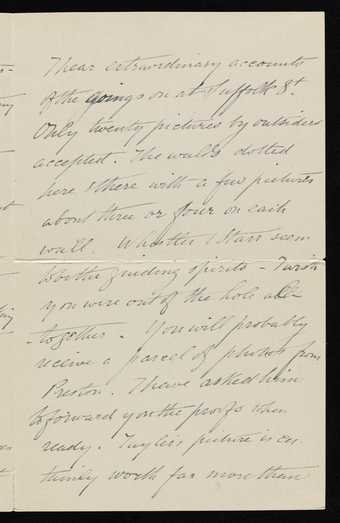 I hear extraordinary accounts
of the goings on at Suffolk St.
Only twenty pictures by outsiders
accepted. The walls dotted
here & there with a few pictures
about three or four on each
wall. Whistler & Starr seem
to be the guiding spirits - I wish
you were out of the hole all-
-together - You will probably
receive a parcel of photos from
Preston. I have asked him
to forward you the proofs when
ready. picture is cer
tainly worth far more than